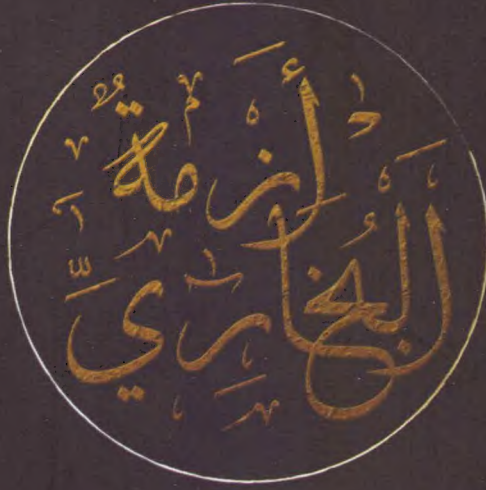 أَزْمَةُ
الْبُخَارِيِّ